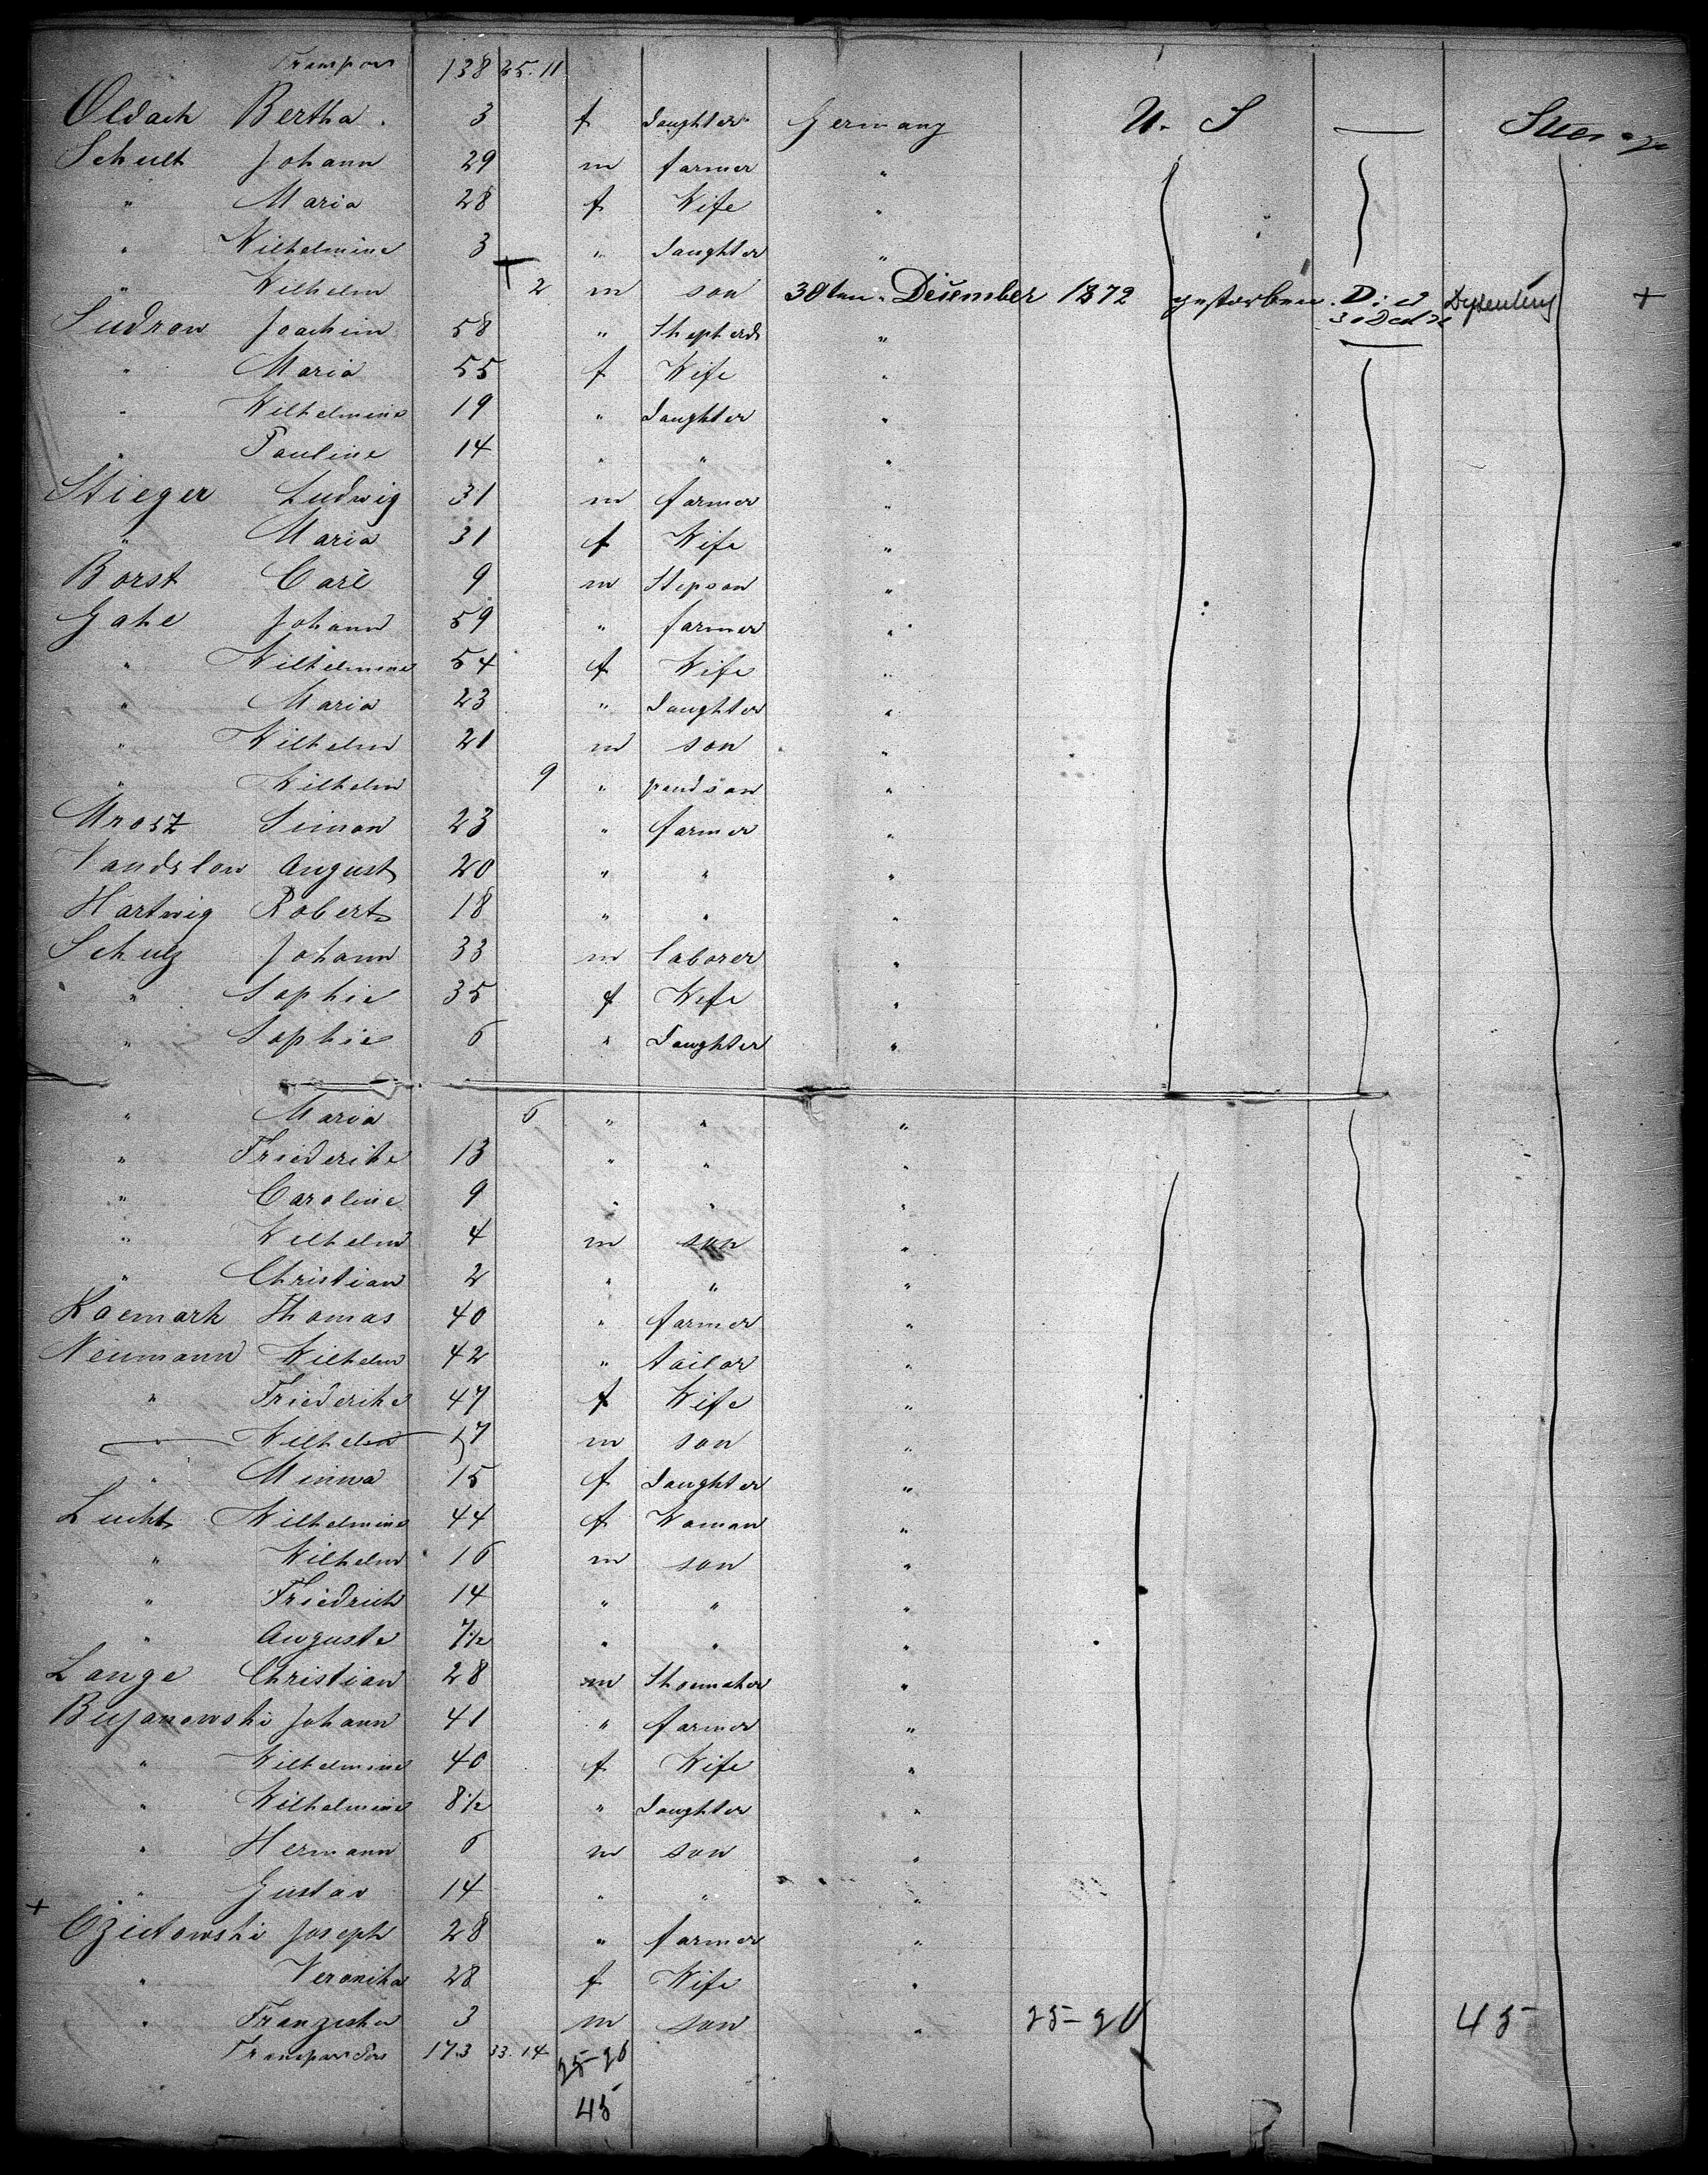 Transport 138 25. 11
Oldach Bertha. 3 f daughter Germany U. S —
Schult Johann 29 m farmer "
" Maria 28 f Wife "
" Wilhelmine 3 " daughter "
" Wilhelm + 2 m son 30ten Dezember 1872 gestorben. Died 30 Dec 72 Dysentery +
Sudrow Joachim 58 " Shepherd " —
" Maria 55 f Wife "
" Wilhelmine 19 " daughter "
" Pauline 14 " " "
Stieger Ludwig 31 m farmer "
" Maria 31 f Wife "
Borst Carl 9 m Stepson "
Gahe Johann 59 " farmer "
" Wilhelmine 54 f Wife "
" Maria 23 " daughter "
" Wilhelm 21 m son "
" Wilhelm 9 " grandson "
Mrosz Simon 23 " farmer "
Vandslow August 20 " " "
Hartwig Robert 18 " " "
Schulz Johann 33 m laborer "
" Sophie 35 f Wife "
" Sophie 6 " Daughter "
" Maria 6 " " "
" Friederike 13 " " "
" Caroline 9 " " "
" Wilhelm 4 m son "
" Christian 2 " " "
Kaemark Thomas 40 " farmer "
Neumann Wilhelm 42 " tailor "
" Friederike 47 f Wife "
" Wilhelm 17 m son "
" Minna 15 f daughter "
Lucht Wilhelmine 44 f Woman "
" Wilhelm 16 m son "
" Friedrich 14 " " "
" Auguste 7½ " " "
Lange Christian 28 m Shoemaker "
Bujanowski Johann 41 " farmer "
" Wilhelmine 40 f Wife "
" Wilhelmine 8½ " daughter "
" Hermann 6 m son "
" Gustav 14 " " "
+ Czietowski Joseph 28 " farmer "
" Veronika 28 f Wife "
" Franziska 3 m son " 25-20 45
173 33. 14 25-20
45